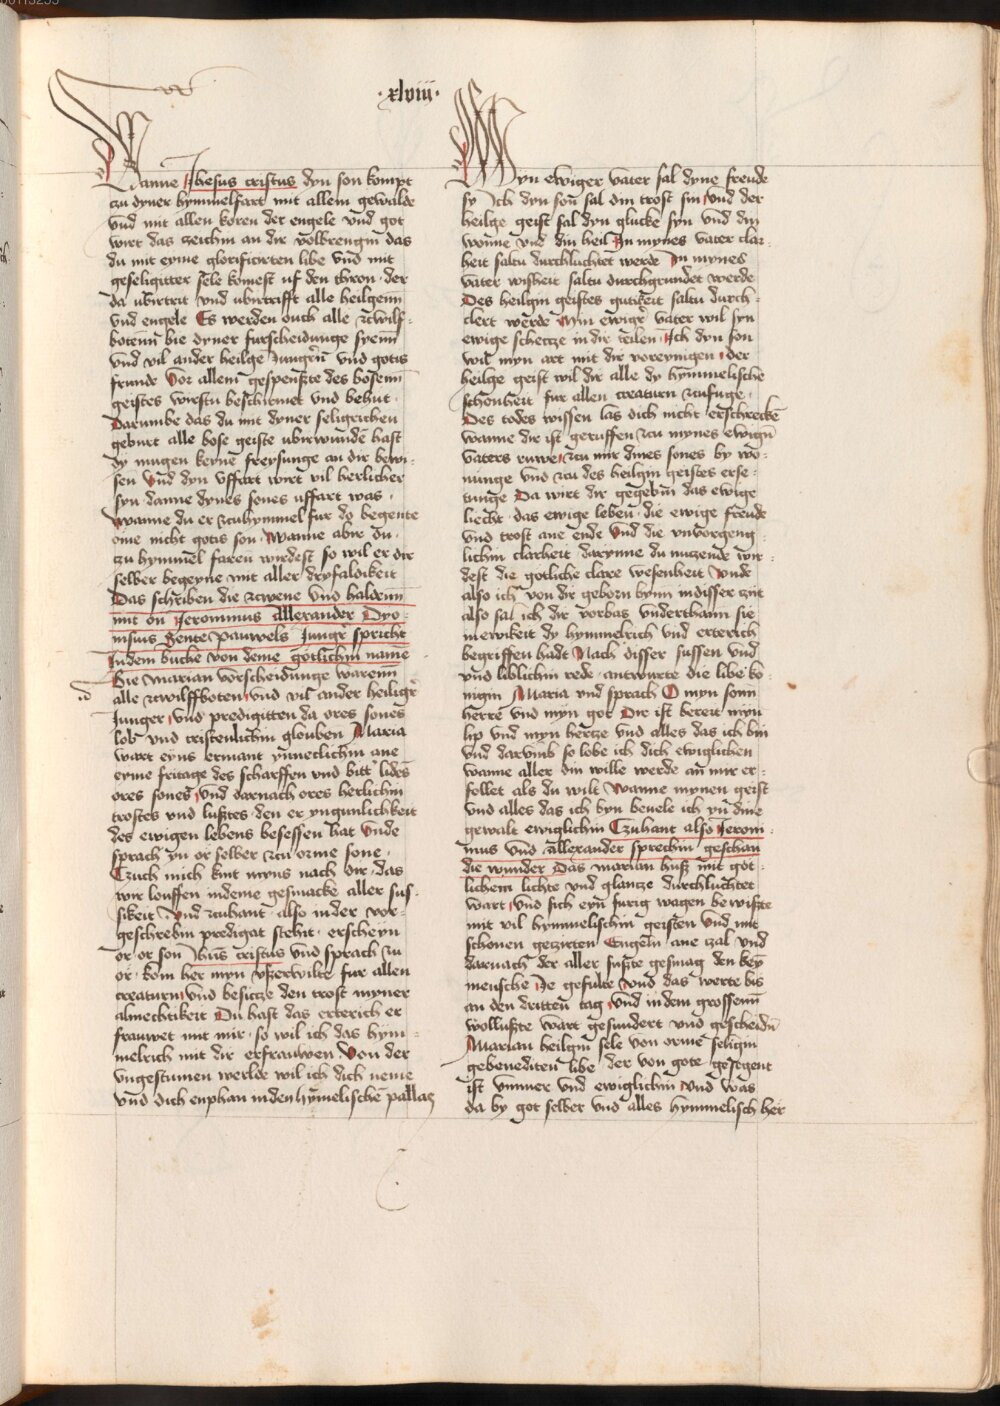 ·xlviii·
Wanne Jhesus cristus dyn son kompt
zu dyner hymmelfart mit allem gewalde
vnd mit allen koren der engele vnd got
wirt das zeichin an dir volbrengin das
du mit eyme glorificirten libe vnd mit
geseligitter sele komest uf den thron · der
da vbirtrit vnd vbirtrifft alle heilgenn
vnd engele Es werden ouch alle zcwilf
botenn bie dyner furscheidunge syenn
vnd vil ander heilge Jungern vnd gotis
frunde Vor allem gespenszte des bosenn
geistes wirstu beschirmet vnd behut ·
Darumbe das du mit dyner seligrichen
geburt alle bose geiste vbirwunden hast
dy mugen keyne freysunge an dir bewi-
sen Vnd dyn vffart wirt vil herlicher
syn danne dynes sones uffart was ·
Wanne du er zcuhymmel fur do begente
ome nicht gotis son · Wanne abir du
zu hymmel faren wirdest so wil er dir
selber begeyne mit aller dryfaldikeit
Das schriben die zcwene vnd haldenn
mit on Jeronimus Allexander Dyo-
nisius Sente pauwels Junger spricht
Indem buche von deme gotlichin name
Bie Marian vorscheidunge warenn
alle zcwilffboten vnd vil ander heiliger
Junger vnd predigitten da ores sones
lob vnd cristenlichin glouben Maria
wart eyns ermant ynneclichin ane
eyme fritage des scharffen vnd bitter lides
ores sones vnd darnach ores herlichin
trostes vnd lusztes · den er yngunlichkeit
des ewigen lebens besessen hat Vnde
sprach yn or selber zcu orme sone ·
Czuch mich kint myns nach dir · das
wir louffen indeme gesmacke aller sus
sikeit Vnd zcuhant · also inder vor-
geschrebin predigat stehit · erscheyn
or or son Jhus cristus vnd sprach zu
or · kom her myn vszerwilte fur allen
creaturn vnd besitcze den trost myner
almechtikeit Du hast das erterich er
frauwet mit mir · so wil ich das hym-
melrich mit dir erfrauwen Von der
vngestumen werlde wil ich dich neme
vnd dich enphan inden hymelischen pallas
Myn ewiger vater sal dyne freude
sy Ich dyn son sal din trost sin vnd der
heilge geist sal dyn glucke syn vnd din
wonne vnd din heil In mynes vater clar-
heit saltu durchluchtet werde In mynes
vater wisheit saltu durchgrundet werde
Des heilgin geistes gutikeit saltu durch-
clert werde Myn ewiger vater wil syn
ewige schetcze in dir teilen Ich dyn son
wil myn art mit dir voreynigen · der
heilge geist wil dir alle dy hymmelische
schonheit fur allen creaturn zcufuge ·
Des todes wissen las dich nicht erschrecken
wanne dir ist geruffen zcu mynes ewigin
vaters ruwe zcu mir dines sones by wo-
nunge vnd zcu des heilgin geistes erse-
tunge Da wirt dir gegebin das ewige
liecht · das ewige leben · die ewige freude
vnd trost ane ende Vnd die vnvorgeng-
lichin clarheit darynne du nutzende wir-
dest die gotliche clare wesenheit Vnde
also ich von dir geborn bynn indisser zyt
also sal ich dir vorbas vnderthann sie
in ewikeit dy hymmelrich vnd erterich
begriffen hadt Nach disser sussen vnd
vnd liblichin rede · antwurte die libe ko-
nigin Maria vnd sprach O myn sonn
herre vnd myn got Dir ist bereit myn
lip vnd myn hertcze vnd alles das ich bin
vnd darvmb so lobe ich dich ewiglichen
wanne aller din wille werde an mir er-
follet als du wilt Wanne mynen geist
vnd alles das ich byn beuele ich yn dine
gewalt ewiglichin Czuhant also Jeroni-
mus vnd Allexander sprechin geschan
die wunder Das marian husz mit got-
lichem lichte vnd glantcze durchluchtet
wart vnd sich eyn furig wagen bewiszte
mit vil hymmelischin geisten vnd mit
schonen gezirten Engeln ane zal vnd
darnach der aller suszte gesmag den keyn
mensche Je gefulte vnd das werte bis
an den dritten tag vnd in dem grossenn
wolluszte wart gesundert vnd gescheidin
Marian heilgin sele von orme seligin
gebenediten libe der von gote gesegent
ist vmmer vnd ewiglichin vnd was
da by got selber vnd alles hymmelisch her